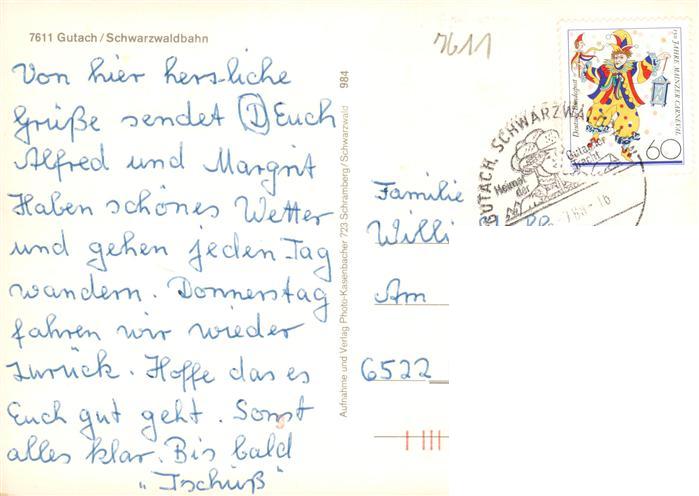 7611 Gutach/Schwarzwaldbahn
Von hier hersliche
Grüße sendet D Euch
Alfred und Margrit
Haben schönes Wetter
und gehen jeden Tag
wandern. Donnerstag
fahren wir wieder
zurück. Hoffe das es
Euch gut geht. Sonst
alles klar. Bis bald
"Tschüß"
984
Aufnahme und Verlag Photo-Kasenbacher 723 Schramberg/Schwarzwald
7611
Deutsche Bundespost
150 JAHRE MAINZER CARNEVAL
60
GUTACH, SCHWARZWALD
Heimat
der
Gutacher
Tracht
Familie
Willi
Am
6522